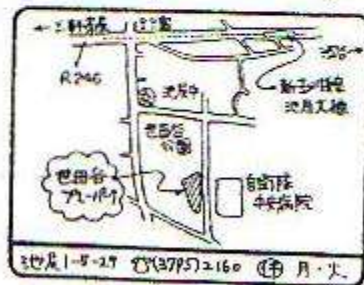 ←三軒茶屋
R246
渋谷→
新玉川線
池尻大橋
池尻中
世田谷
公園
世田谷
プレーパーク
自衛隊
中央病院
池尻1-5-27 ☎(3795)2160 休 月・火